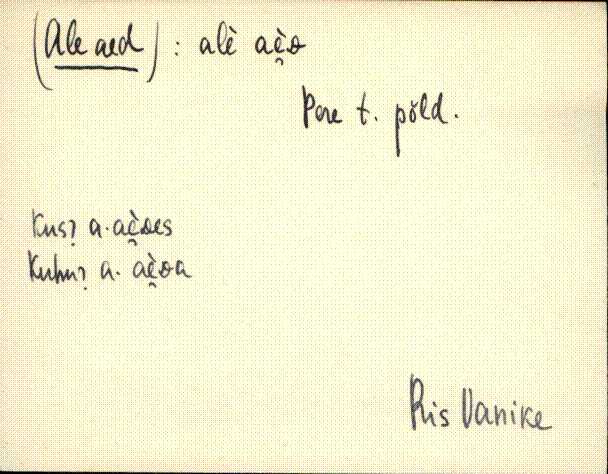 (Ale aed) : alè aè̬ᴅ
Pere t. põld.
Kus? a. aè̬ᴅes
Kuhu? a. aè̬ᴅa
Ris Vanike